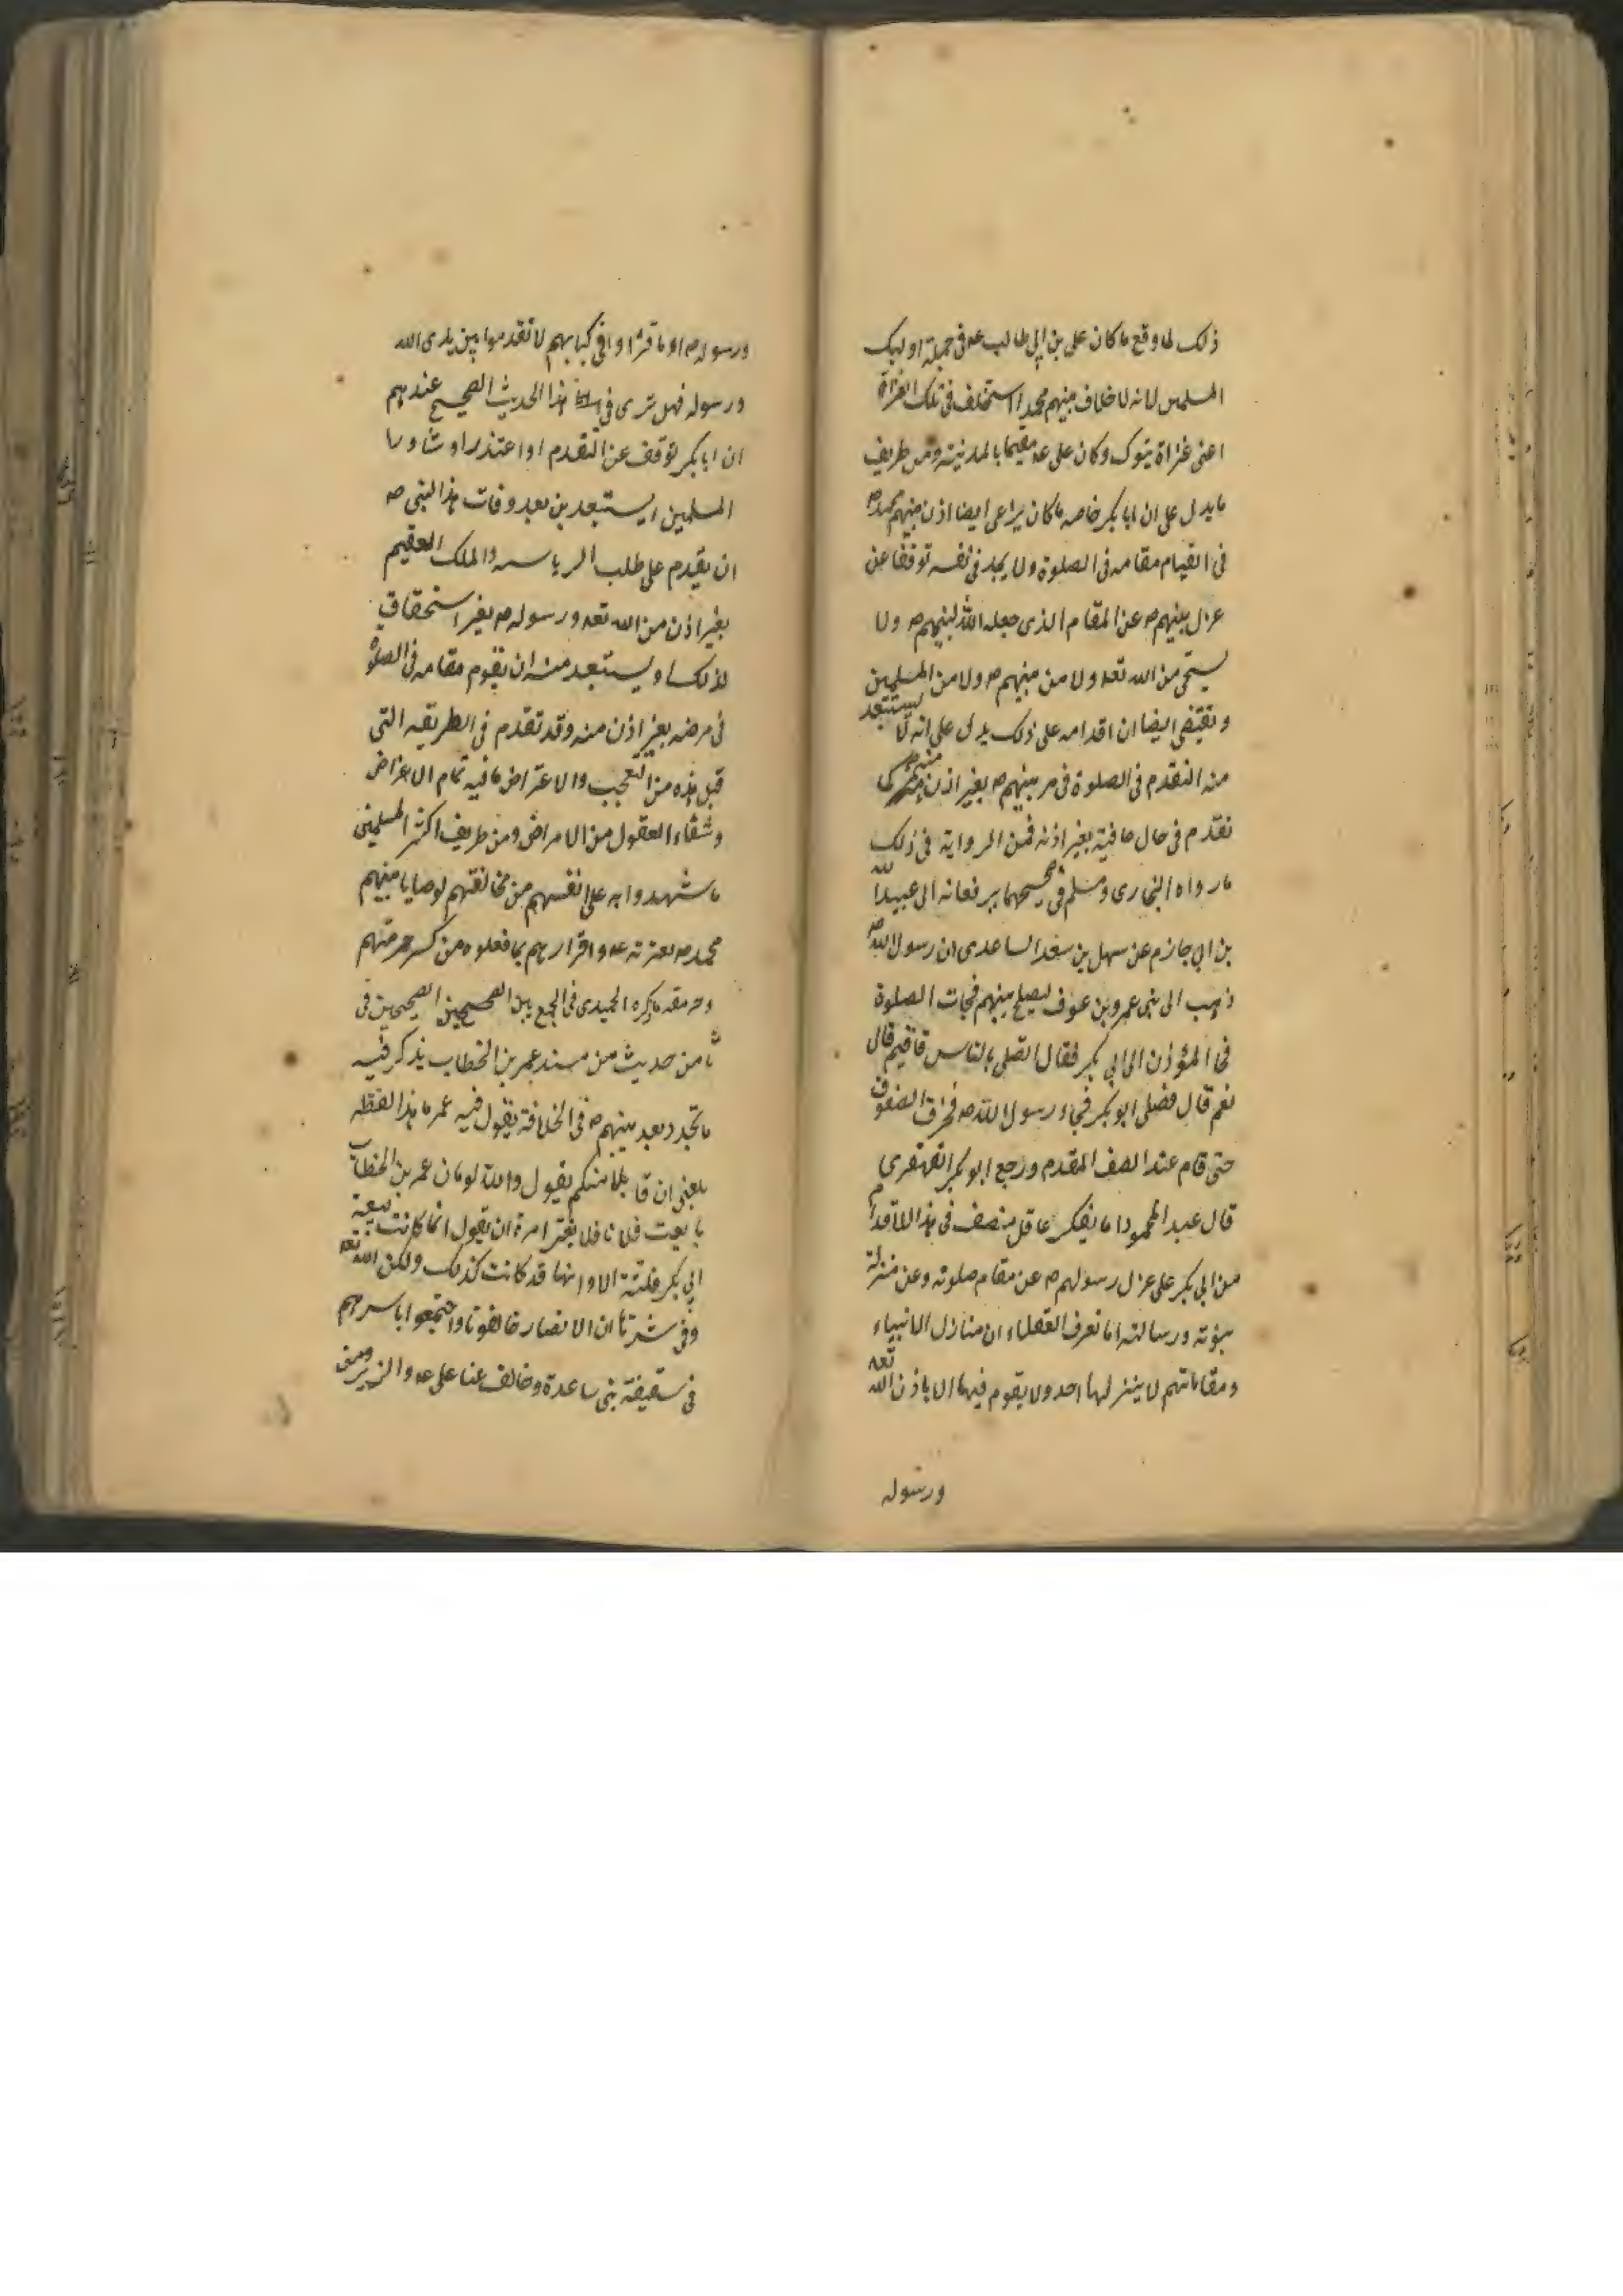 ذلك لما وقع ما كان على بن ابى طالب عه فى جملة اوليك
المسلمين لانه لا خلاف بينهم محمد استخلف فى تلك الغزاة
اعنى غزاة تبوك وكان على عه مقيما بالمدينة ومن طريف
ما يدل على ان ابا بكر خاصه ما كان يراعى ايضا اذن نبيهم محمد ص
فى القيام مقامه فى الصلوة ولا يجد فى نفسه توقفا عن
عزل نبيهم ص عن المقام الذى جعله الله لنبيهم ص ولا
يستحى من الله تعه ولا من نبيهم ص ولا من المسلمين
ويقتضى ايضا ان اقدامه على ذلك يدل على انه لا يستبعد
منه التقدم فى الصلوة فى مر نبيهم ص بغير اذن منه ص كما
تقدم فى حال عافيته بغير اذنه فمن الرواية فى ذلك
ما رواه البخارى ومسلم فى صحيحهما يرفعانه الى عبيد الله
بن ابى حازم عن سهل بن سعد الساعدى ان رسول الله ص
ذهب الى بنى عمرو بن عوف ليصلح بينهم فجات الصلوة
فجا المؤذن الى ابى بكر فقال اتصلى بالناس فاقيم قال
نعم قال فصلى ابو بكر فجاء رسول الله ص فخرق الصفوف
حتى قام عند الصف المقدم ورجع ابو بكر القهقرى
قال عبد المحمود اما يفكر عاقل منصف فى هذا الاقدام
من ابى بكر على عزل رسولهم ص عن مقام صلوته وعن منزلة
نبوته ورسالته اما تعرف العقلاء ان منازل الانبياء
ومقاماتهم لا ينزلها احد ولا يقوم فيها الا باذن الله تعه
ورسوله
ورسوله ص او ما قرءوا فى كتابهم لا تقدموا بين يدى الله
ورسوله فهل ترى فى هذا الحديث الصحيح عندهم
ان ابا بكر توقف عن التقدم او اعتذر او شاور
المسلمين ايستبعد بن بعد وفات هذا النبى ص
ان يقدم على طلب الرياسه والملك العقيم
بغير اذن من الله تعه ورسوله ص بغير استحقاق
لذلك او يستبعد منه ان يقوم مقامه فى الصلوة
فى مرضه بغير اذن منه وقد تقدم فى الطريقه التى
قبل هذه من التعجب والاعتراض ما فيه تمام الاغراض
وشفاء العقول من الامراض ومن طريف اكثر المسلمين
ما شهدوا به على انفسهم من مخالفتهم لوصايا نبيهم
محمد ص بعترته عه واقرارهم بما فعلوه من كسر حرمتهم
ما ذكره الحميدى فى الجمع بين الصحيحين الصحيحين فى
ثامن حديث من مسند عمر بن الخطاب يذكر فيه
ما تجدد بعد نبيهم ص فى الخلافة يقول فيه عمر ما هذا لفظه
بلغنى ان قائلا منكم يقول والله لو مات عمر بن الخطاب
بايعت فلانا فلا يغتر امرء ان يقول انما كانت بيعة
ابى بكر فلتة الا وانها قد كانت كذلك ولكن الله تعه
وقى شرها ان الانصار خالفونا واجتمعوا باسرهم
فى سقيفة بنى ساعدة وخالف عنا على عه والزبير ومن